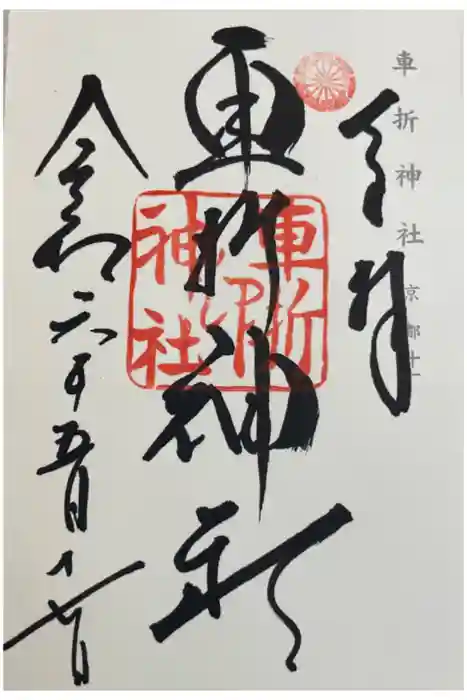 車折神社 京都
奉拝
車折神社
令和六年五月十七日
車折
神社